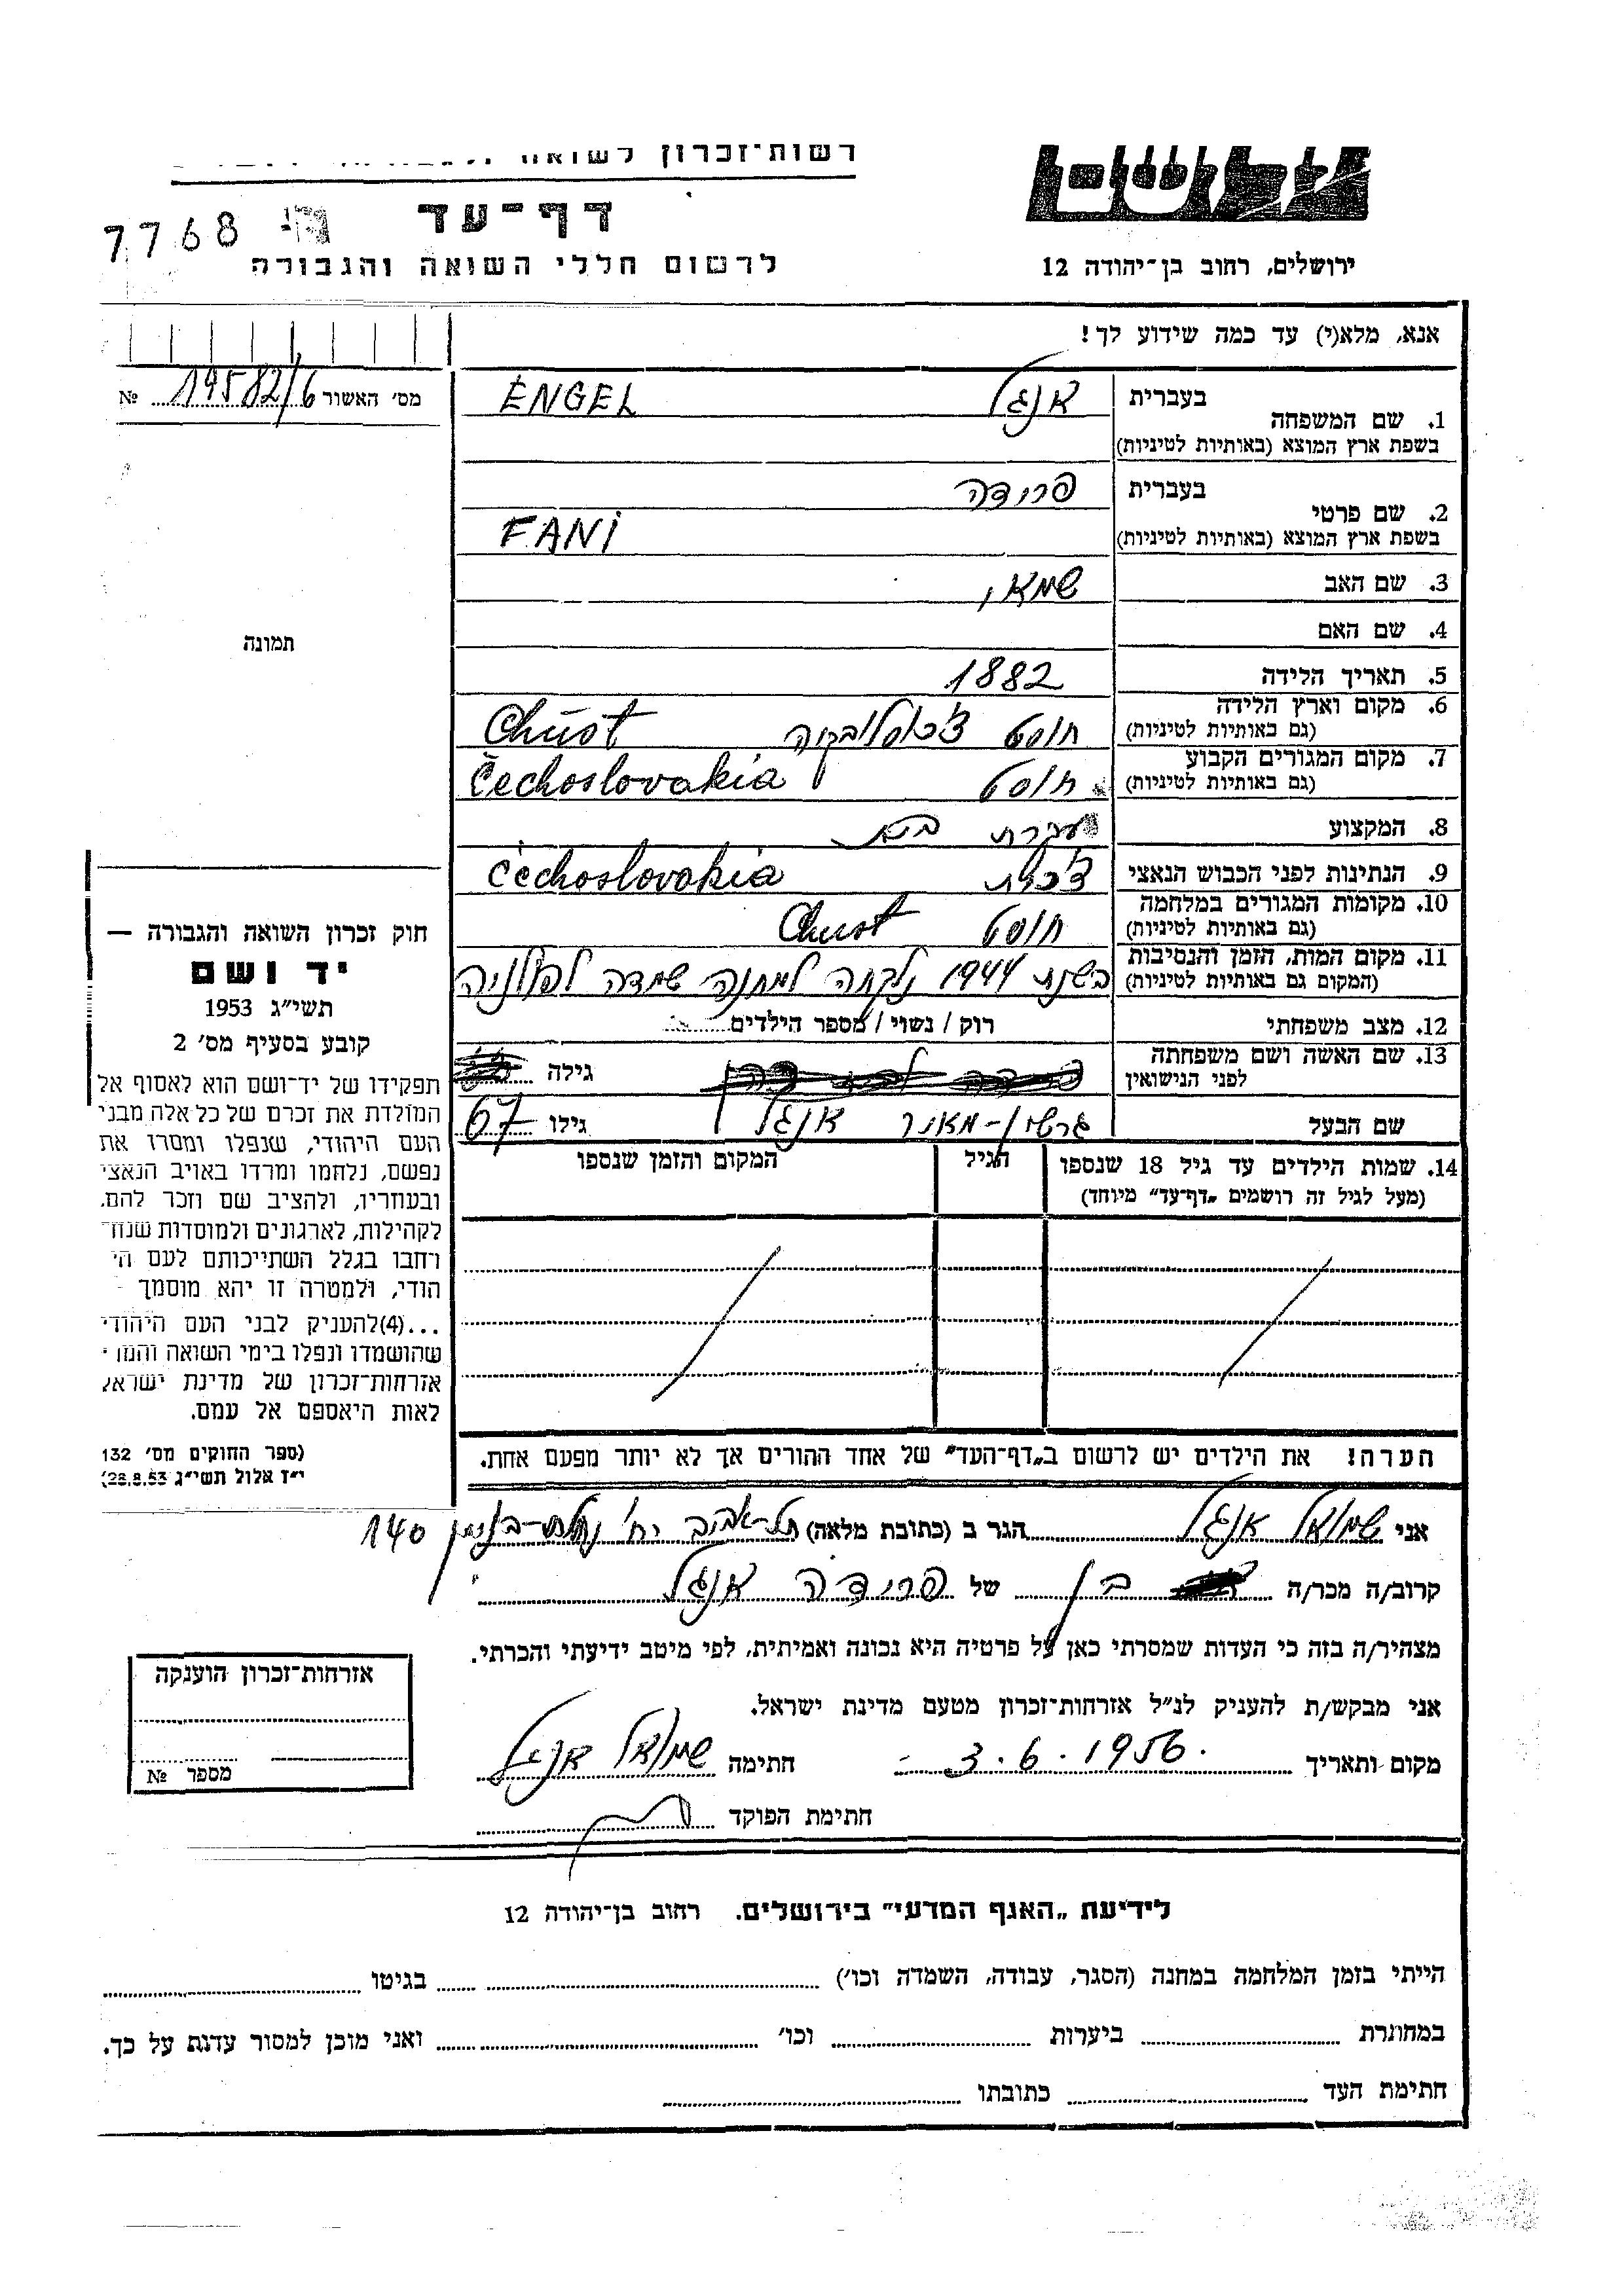 רשות־זכרון לשואה
דף־עד
7768
לרשום חללי השואה והגבורה
ירושלים, רחוב בן־יהודה 12
אנא, מלא(י) עד כמה שידוע לך!
מס׳ האשור 19582/6 №
1. שם המשפחה
בעברית אנגל ENGEL
בשפת ארץ המוצא (באותיות לטיניות)
2. שם פרטי
בעברית פרידה
בשפת ארץ המוצא (באותיות לטיניות) FANI
3. שם האב
4. שם האם
5. תאריך הלידה 1882
6. מקום וארץ הלידה חוסט Chust
(גם באותיות לטיניות)
7. מקום המגורים הקבוע חוסט Čechoslovakia
(גם באותיות לטיניות)
8. המקצוע עקרת בית
9. הנתינות לפני הכבוש הנאצי צ׳כית Čechoslovakia
10. מקומות המגורים במלחמה חוסט Chust
(גם באותיות לטיניות)
11. מקום המות, הזמן והנסיבות בשנת 1944 נלקחה למחנה שמדה לפולניה
(המקום גם באותיות לטיניות)
12. מצב משפחתי רוק / נשוי / מספר הילדים
13. שם האשה ושם משפחתה
לפני הנישואין
גילה
שם הבעל גרשון-מאיר אנגל גילו 67
14. שמות הילדים עד גיל 18 שנספו הגיל המקום והזמן שנספו
(מעל לגיל זה רושמים „דף־עד״ מיוחד)
הערה! את הילדים יש לרשום ב„דף־העד״ של אחד ההורים אך לא יותר מפעם אחת.
תמונה
חוק זכרון השואה והגבורה —
יד ושם
תשי״ג 1953
קובע בסעיף מס׳ 2
תפקידו של יד־ושם הוא לאסוף אל
המולדת את זכרם של כל אלה מבני
העם היהודי, שנפלו ומסרו את
נפשם, נלחמו ומרדו באויב הנאצי
ובעוזריו, ולהציב שם וזכר להם,
לקהילות, לארגונים ולמוסדות שנח־
רחבו בגלל השתייכותם לעם הי־
הודי, ולמטרה זו יהא מוסמך –
...(4)להעניק לבני העם היהודי
שהושמדו ונפלו בימי השואה והמרי
אזרחות־זכרון של מדינת ישראל
לאות היאספם אל עמם.
(ספר החוקים מס׳ 132
י״ז אלול תשי״ג 28.8.53)
אני שמואל אנגל הגר ב (כתובת מלאה) תל-אביב רח׳ נחלת-בנימין 140
קרוב/ה מכר/ה בן של פרידה אנגל
מצהיר/ה בזה כי העדות שמסרתי כאן על פרטיה היא נכונה ואמיתית, לפי מיטב ידיעתי והכרתי.
אני מבקש/ת להעניק לנ״ל אזרחות־זכרון מטעם מדינת ישראל.
מקום ותאריך 3.6.1956 חתימה שמואל אנגל
חתימת הפוקד
אזרחות־זכרון הוענקה
מספר №
לידיעת „האגף המדעי״ בירושלים. רחוב בן־יהודה 12
הייתי בזמן המלחמה במחנה (הסגר, עבודה, השמדה וכו׳) בגיטו
במחתרת ביערות וכו׳ ואני מוכן למסור עדות על כך.
חתימת העד כתובתו